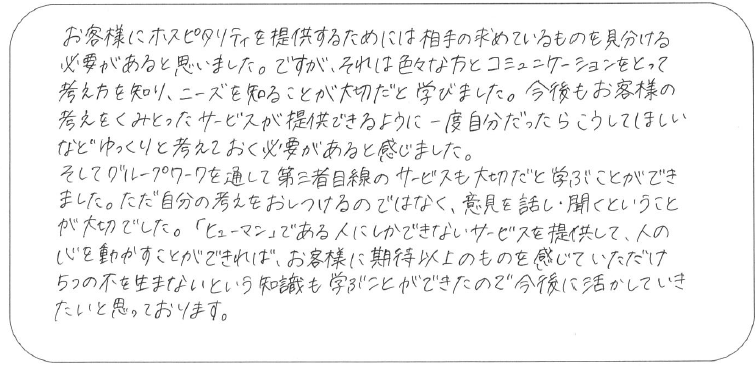 お客様にホスピタリティを提供するためには相手の求めているものを見分ける
必要があると思いました。ですが、それは色々な方とコミュニケーションをとって
考え方を知り、ニーズを知ることが大切だと学びました。今後もお客様の
考えをくみとったサービスが提供できるように一度自分だったらこうしてほしい
などゆっくりと考えておく必要があると感じました。
そしてグループワークを通して第三者目線のサービスも大切だと学ぶことができ
ました。ただ自分の考えをおしつけるのではなく、意見を話し・聞くということ
が大切でした。「ヒューマン」である人にしかできないサービスを提供して、人の
心を動かすことができれば、お客様に期待以上のものを感じていただけ
5つの不を生まないという知識も学ぶことができたので今後に活かしていき
たいと思っております。